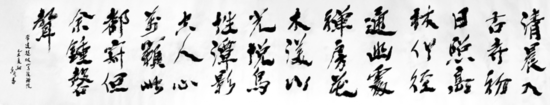 清晨入
古寺初
日照高
林竹徑
通幽處
禪房花
木深山
光悅鳥
性潭影
空人心
萬籟此
都寂但
余鐘磬
聲